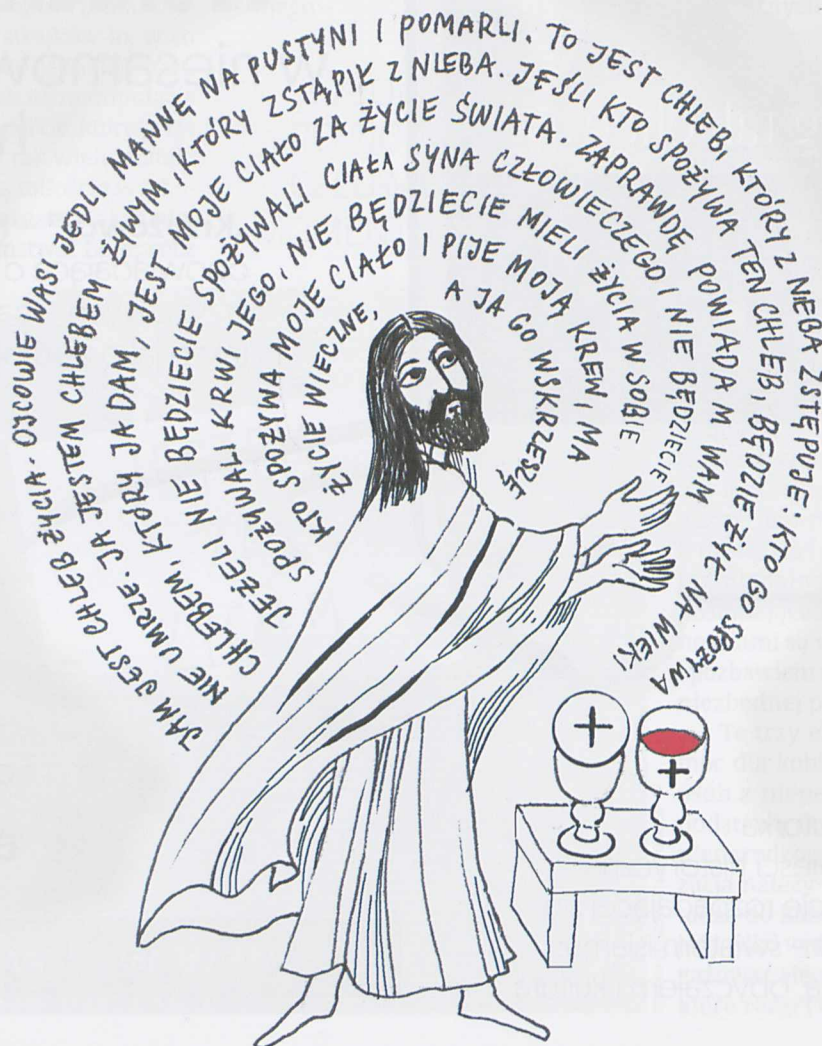 JAM JEST CHLEB ŻYCIA. OJCOWIE WASI JEDLI MANNĘ NA PUSTYNI I POMARLI. TO JEST CHLEB, KTÓRY Z NIEBA ZSTĘPUJE: KTO GO SPOŻYWA
NIE UMRZE. JA JESTEM CHLEBEM ŻYWYM, KTÓRY ZSTĄPIŁ Z NIEBA. JEŚLI KTO SPOŻYWA TEN CHLEB, BĘDZIE ŻYŁ NA WIEKI
CHLEBEM, KTÓRY JA DAM, JEST MOJE CIAŁO ZA ŻYCIE ŚWIATA. ZAPRAWDĘ POWIADAM WAM
JEŻELI NIE BĘDZIECIE SPOŻYWALI CIAŁA SYNA CZŁOWIECZEGO I NIE BĘDZIECIE
SPOŻYWALI KRWI JEGO, NIE BĘDZIECIE MIELI ŻYCIA W SOBIE
KTO SPOŻYWA MOJE CIAŁO I PIJE MOJĄ KREW MA
ŻYCIE WIECZNE, A JA GO WSKRZESZĘ